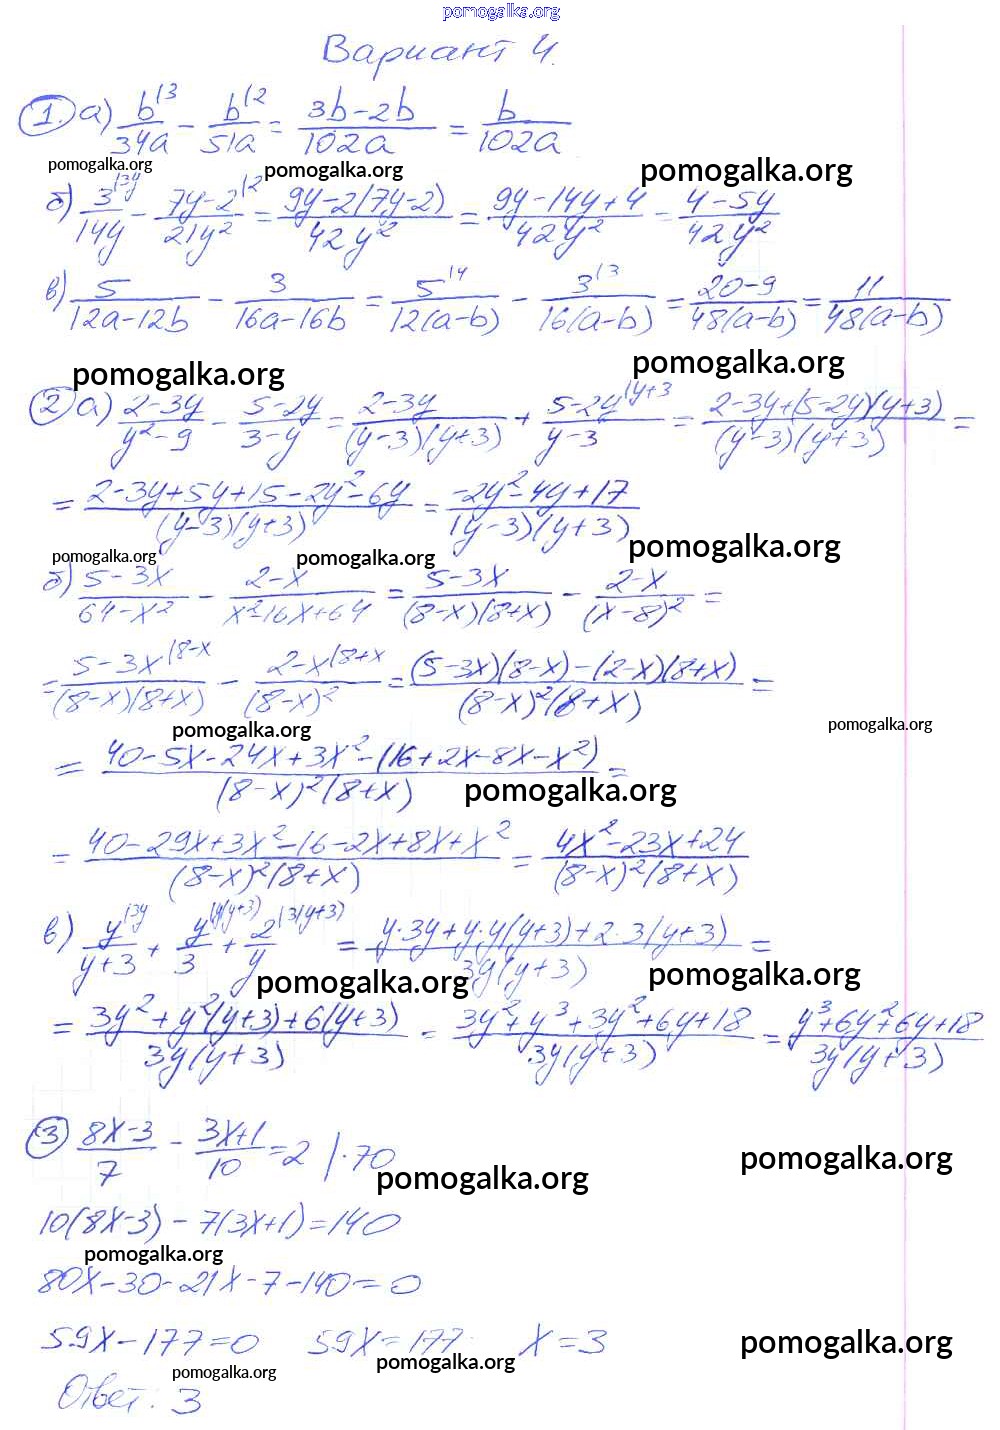 pomogalka.org
Вариант 4.
1. а) b^{|3}/34a − b^{|2}/51a = (3b−2b)/102a = b/102a
pomogalka.org pomogalka.org pomogalka.org
б) 3^{|3y}/14y − (7y−2)^{|2}/21y² = (9y−2(7y−2))/42y² = (9y−14y+4)/42y² = (4−5y)/42y²
в) 5/(12a−12b) − 3/(16a−16b) = 5^{|4}/12(a−b) − 3^{|3}/16(a−b) = (20−9)/48(a−b) = 11/48(a−b)
pomogalka.org pomogalka.org
2 а) (2−3y)/(y²−9) − (5−2y)/(3−y) = (2−3y)/((y−3)(y+3)) + (5−2y)^{|y+3}/(y−3) = (2−3y+(5−2y)(y+3))/((y−3)(y+3)) =
= (2−3y+5y+15−2y²−6y)/((y−3)(y+3)) = (−2y²−4y+17)/((y−3)(y+3))
pomogalka.org pomogalka.org pomogalka.org
б) (5−3x)/(64−x²) − (2−x)/(x²−16x+64) = (5−3x)/((8−x)(8+x)) − (2−x)/(x−8)² =
= (5−3x)^{|8−x}/((8−x)(8+x)) − (2−x)^{|8+x}/(8−x)² = ((5−3x)(8−x)−(2−x)(8+x))/((8−x)²(8+x)) =
pomogalka.org pomogalka.org
= (40−5x−24x+3x²−(16+2x−8x−x²))/((8−x)²(8+x)) =
pomogalka.org
= (40−29x+3x²−16−2x+8x+x²)/((8−x)²(8+x)) = (4x²−23x+24)/((8−x)²(8+x))
в) y^{|3y}/(y+3) + y^{|y(y+3)}/3 + 2^{|3(y+3)}/y = (y·3y+y·y(y+3)+2·3(y+3))/(3y(y+3)) =
pomogalka.org pomogalka.org
= (3y²+y²(y+3)+6(y+3))/(3y(y+3)) = (3y²+y³+3y²+6y+18)/(3y(y+3)) = (y³+6y²+6y+18)/(3y(y+3))
3 (8x−3)/7 − (3x+1)/10 = 2 |·70
pomogalka.org pomogalka.org
10(8x−3) − 7(3x+1) = 140
pomogalka.org
80x−30−21x−7−140=0
59x−177=0 59x=177 x=3
pomogalka.org pomogalka.org pomogalka.org
Ответ: 3